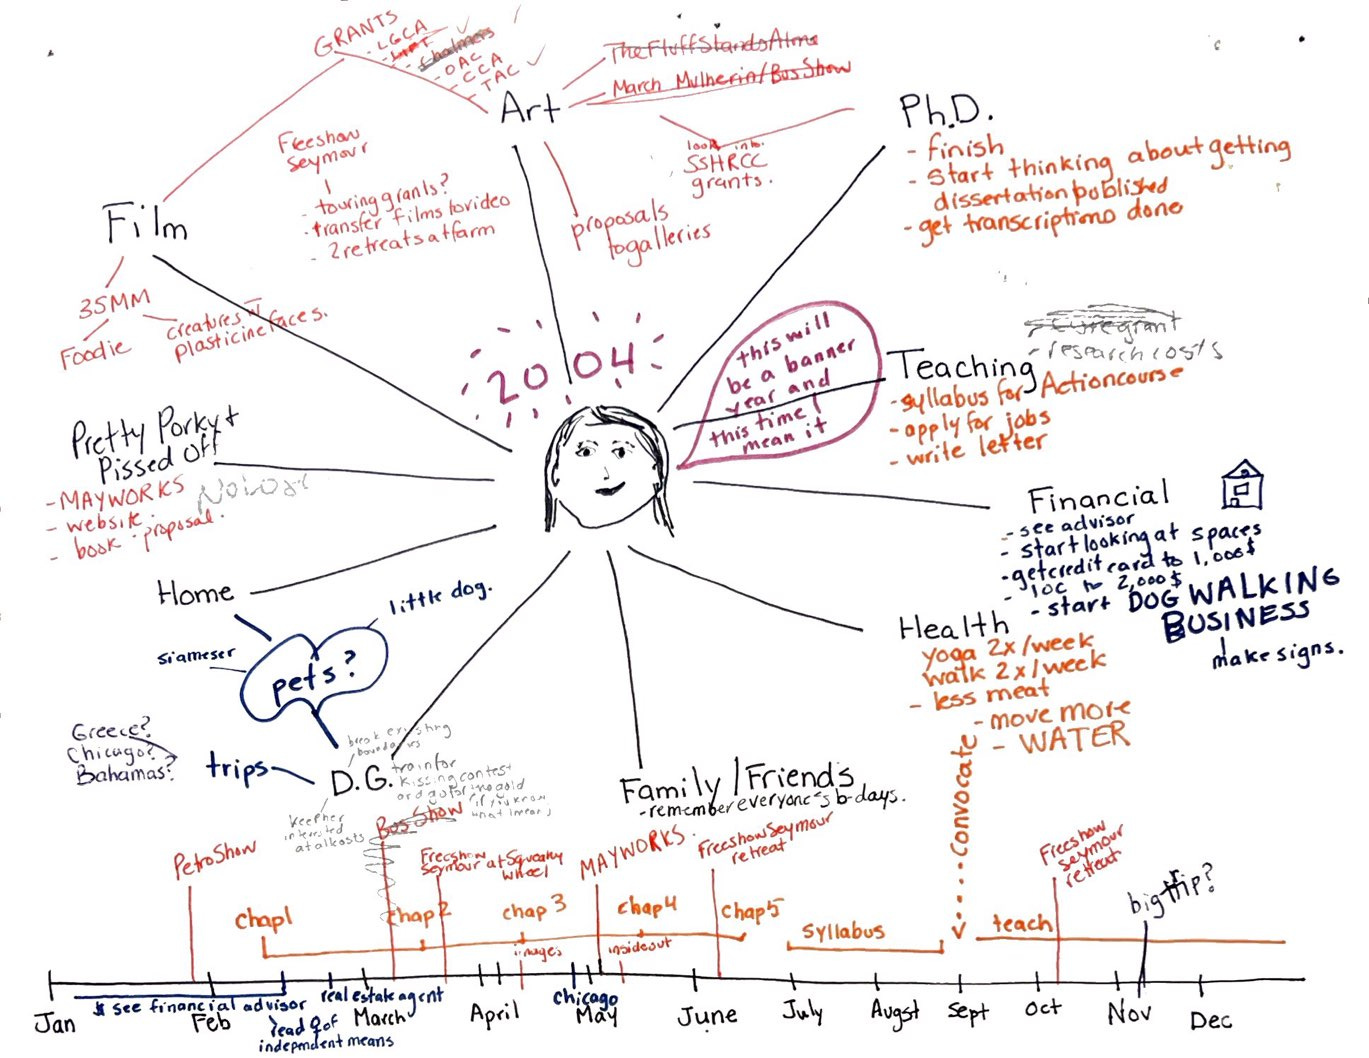 GRANTS
- LGCA
- LIFT
- Chalmers
- OAC
- CCA
- TAC
Art
The Fluff Stands Alone
March Mulherin/Bus Show
look into
SSHRCC
grants.
proposals
to galleries
Freeshow
Seymour
- touring grants?
- transfer films to video
- 2 retreats at farm
Film
35MM
Foodie
creatures w
plasticine faces.
Ph.D.
- finish
- start thinking about getting
dissertation published
- get transcriptions done
2004
this will
be a banner
year and
this time I
mean it
grant
- research costs
Teaching
- syllabus for Action course
- apply for jobs
- write letter
Pretty Porky +
Pissed Off
- MAYWORKS
- website
- book proposal.
NOLOSE
Financial
- see advisor
- start looking at spaces
- get credit card to 1,000$
- loc to 2,000$
- start DOG WALKING
BUSINESS
make signs.
Home
little dog.
siameser
pets?
Health
yoga 2x/week
walk 2x/week
- less meat
- move more
- WATER
Greece?
Chicago?
Bahamas?
trips
D.G.
break existing
boundaries
train for
kissing contest
and go for the gold
(if you know
what I mean)
keep her
interested
at all costs
Family/Friends
- remember everyone's b-days.
Petro Show
Bus Show
Freeshow
Seymour at Squeaky
Wheel
MAYWORKS
Freeshow Seymour
retreat
Convocate
Freeshow
Seymour
retreat
big trip?
chap 1
chap 2
chap 3
chap 4
chap 5
syllabus
teach
images
inside out
$ see financial advisor
real estate agent
read 9 of
independent means
chicago
Jan
Feb
March
April
May
June
July
Augst
Sept
Oct
Nov
Dec